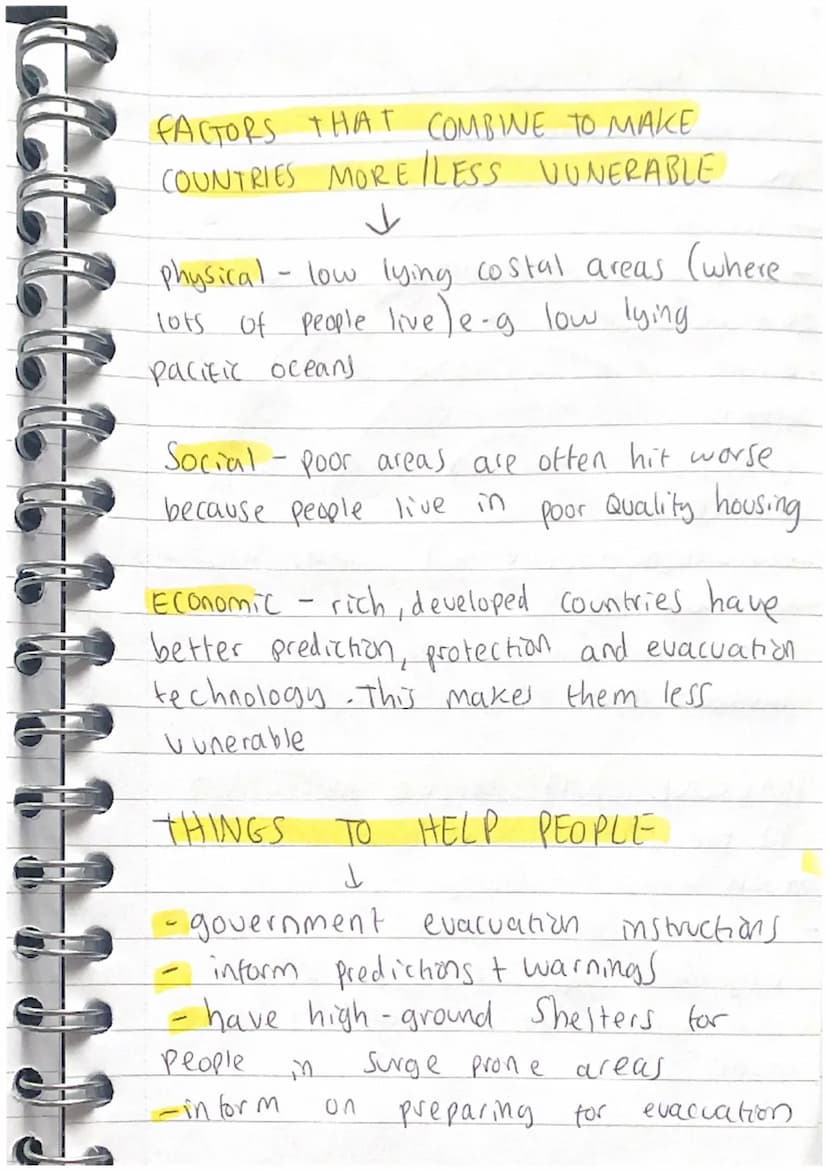 FACTORS THAT COMBINE TO MAKE
COUNTRIES MORE/LESS VUNERABLE
↓
physical - low lying costal areas (where
lots of people live) e-g low lying
pacific oceans
Social - poor areas are often hit worse
because people live in poor Quality housing
Economic - rich, developed countries have
better prediction, protection and evacuation
technology. This makes them less
vunerable
THINGS TO HELP PEOPLE
↓
- government evacuation instructions
- inform predictions + warnings
- have high-ground shelters for
people in surge prone areas
- inform on preparing for evaccuation